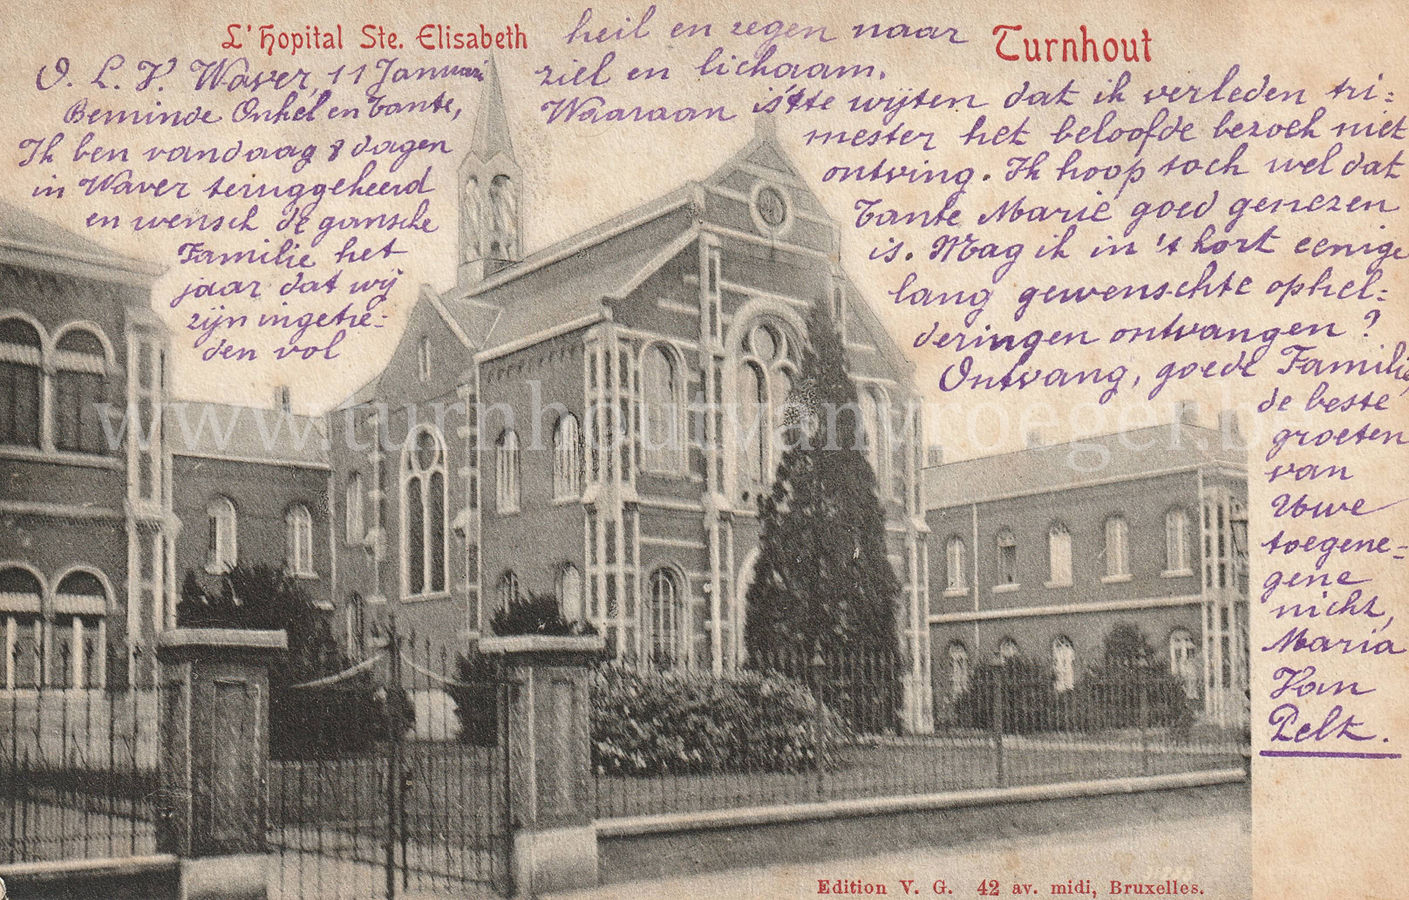 L'Hopital Ste. Elisabeth
Turnhout
O. L. V. Waver, 11 Januari
Beminde Onkel en Tante,
Ik ben vandaag 8 dagen
in Waver teruggekeerd
en wensch de gansche
Familie het
jaar dat wij
zijn ingetre=
den vol
heil en zegen naar
ziel en lichaam.
Waaraan is 't te wijten dat ik verleden tri=
mester het beloofde bezoek niet
ontving. Ik hoop toch wel dat
Tante Marie goed genezen
is. Mag ik in 't kort eenige
lang gewenschte ophel=
deringen ontvangen ?
Ontvang, goede Familie,
de beste
groeten
van
Uwe
toegene=
gene
nicht,
Maria
Van
Pelt.
www.turnhoutvanvroeger.be
Edition V. G. 42 av. midi, Bruxelles.